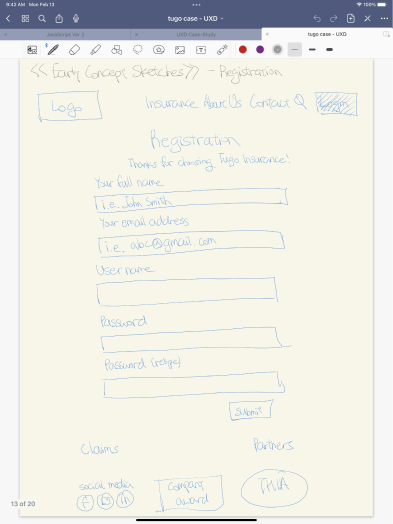 9:43 AM Mon Feb 13
100%
tugo case - UXD
JavaScript Ver 2
UXD Case Study
tugo case - UXD
<< Early Concept Sketches >> - Registration
Logo
Insurance About Us Contact Q
Login
Registration
Thanks for choosing Tugo Insurance!
Your full name
i.e. John Smith
Your email address
i.e. abc@gmail.com
Username
Password
Password (retype)
Submit
Claims
Partners
social media
f
in
Company
award
THIA
13 of 20